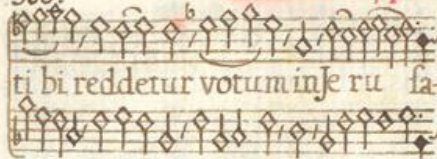 ti bi reddetur votum in Je ru sa-